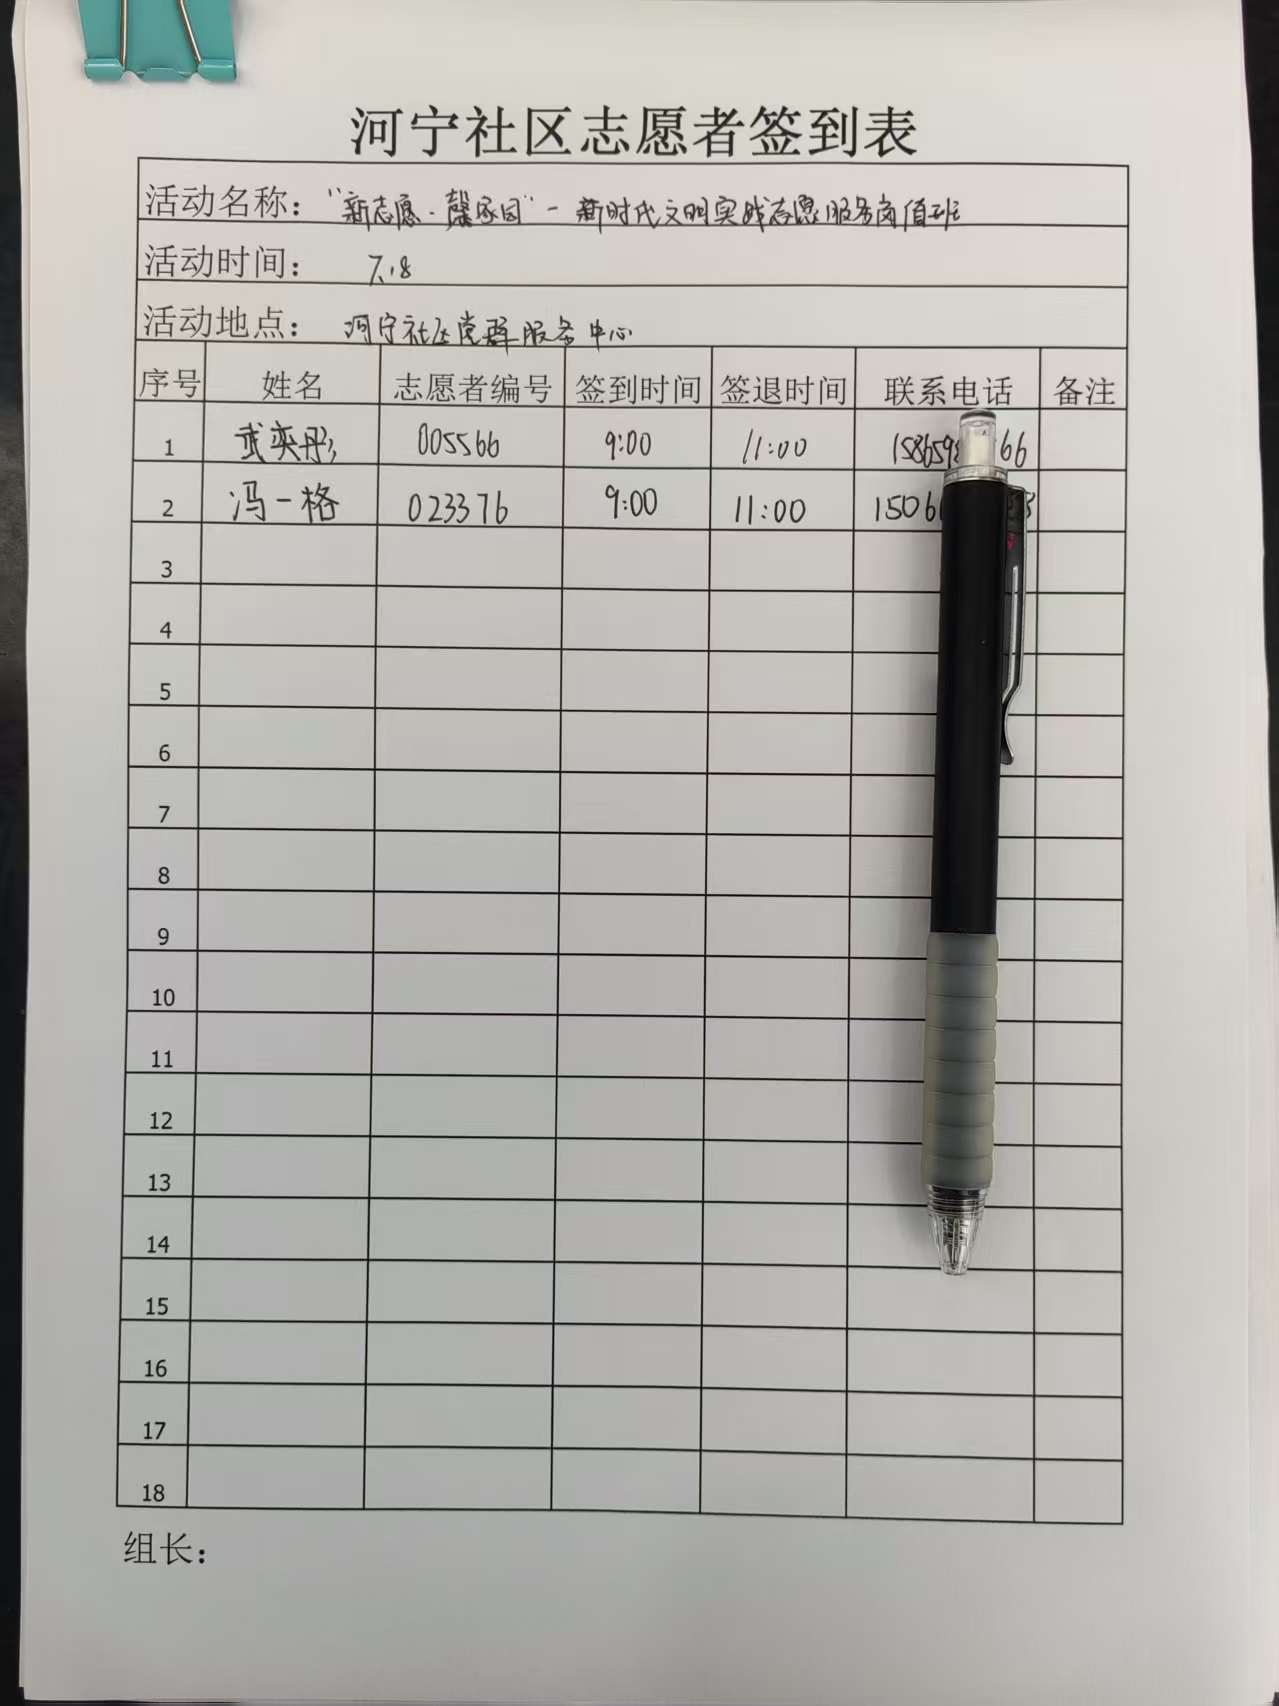 河宁社区志愿者签到表
活动名称： “新志愿·馨家园”－新时代文明实践志愿服务岗值班
活动时间： 7.18
活动地点： 河宁社区党群服务中心
序号 姓名 志愿者编号 签到时间 签退时间 联系电话 备注
1 武奕彤 005566 9:00 11:00 158659 66
2 冯一格 023376 9:00 11:00 1506
3
4
5
6
7
8
9
10
11
12
13
14
15
16
17
18
组长：